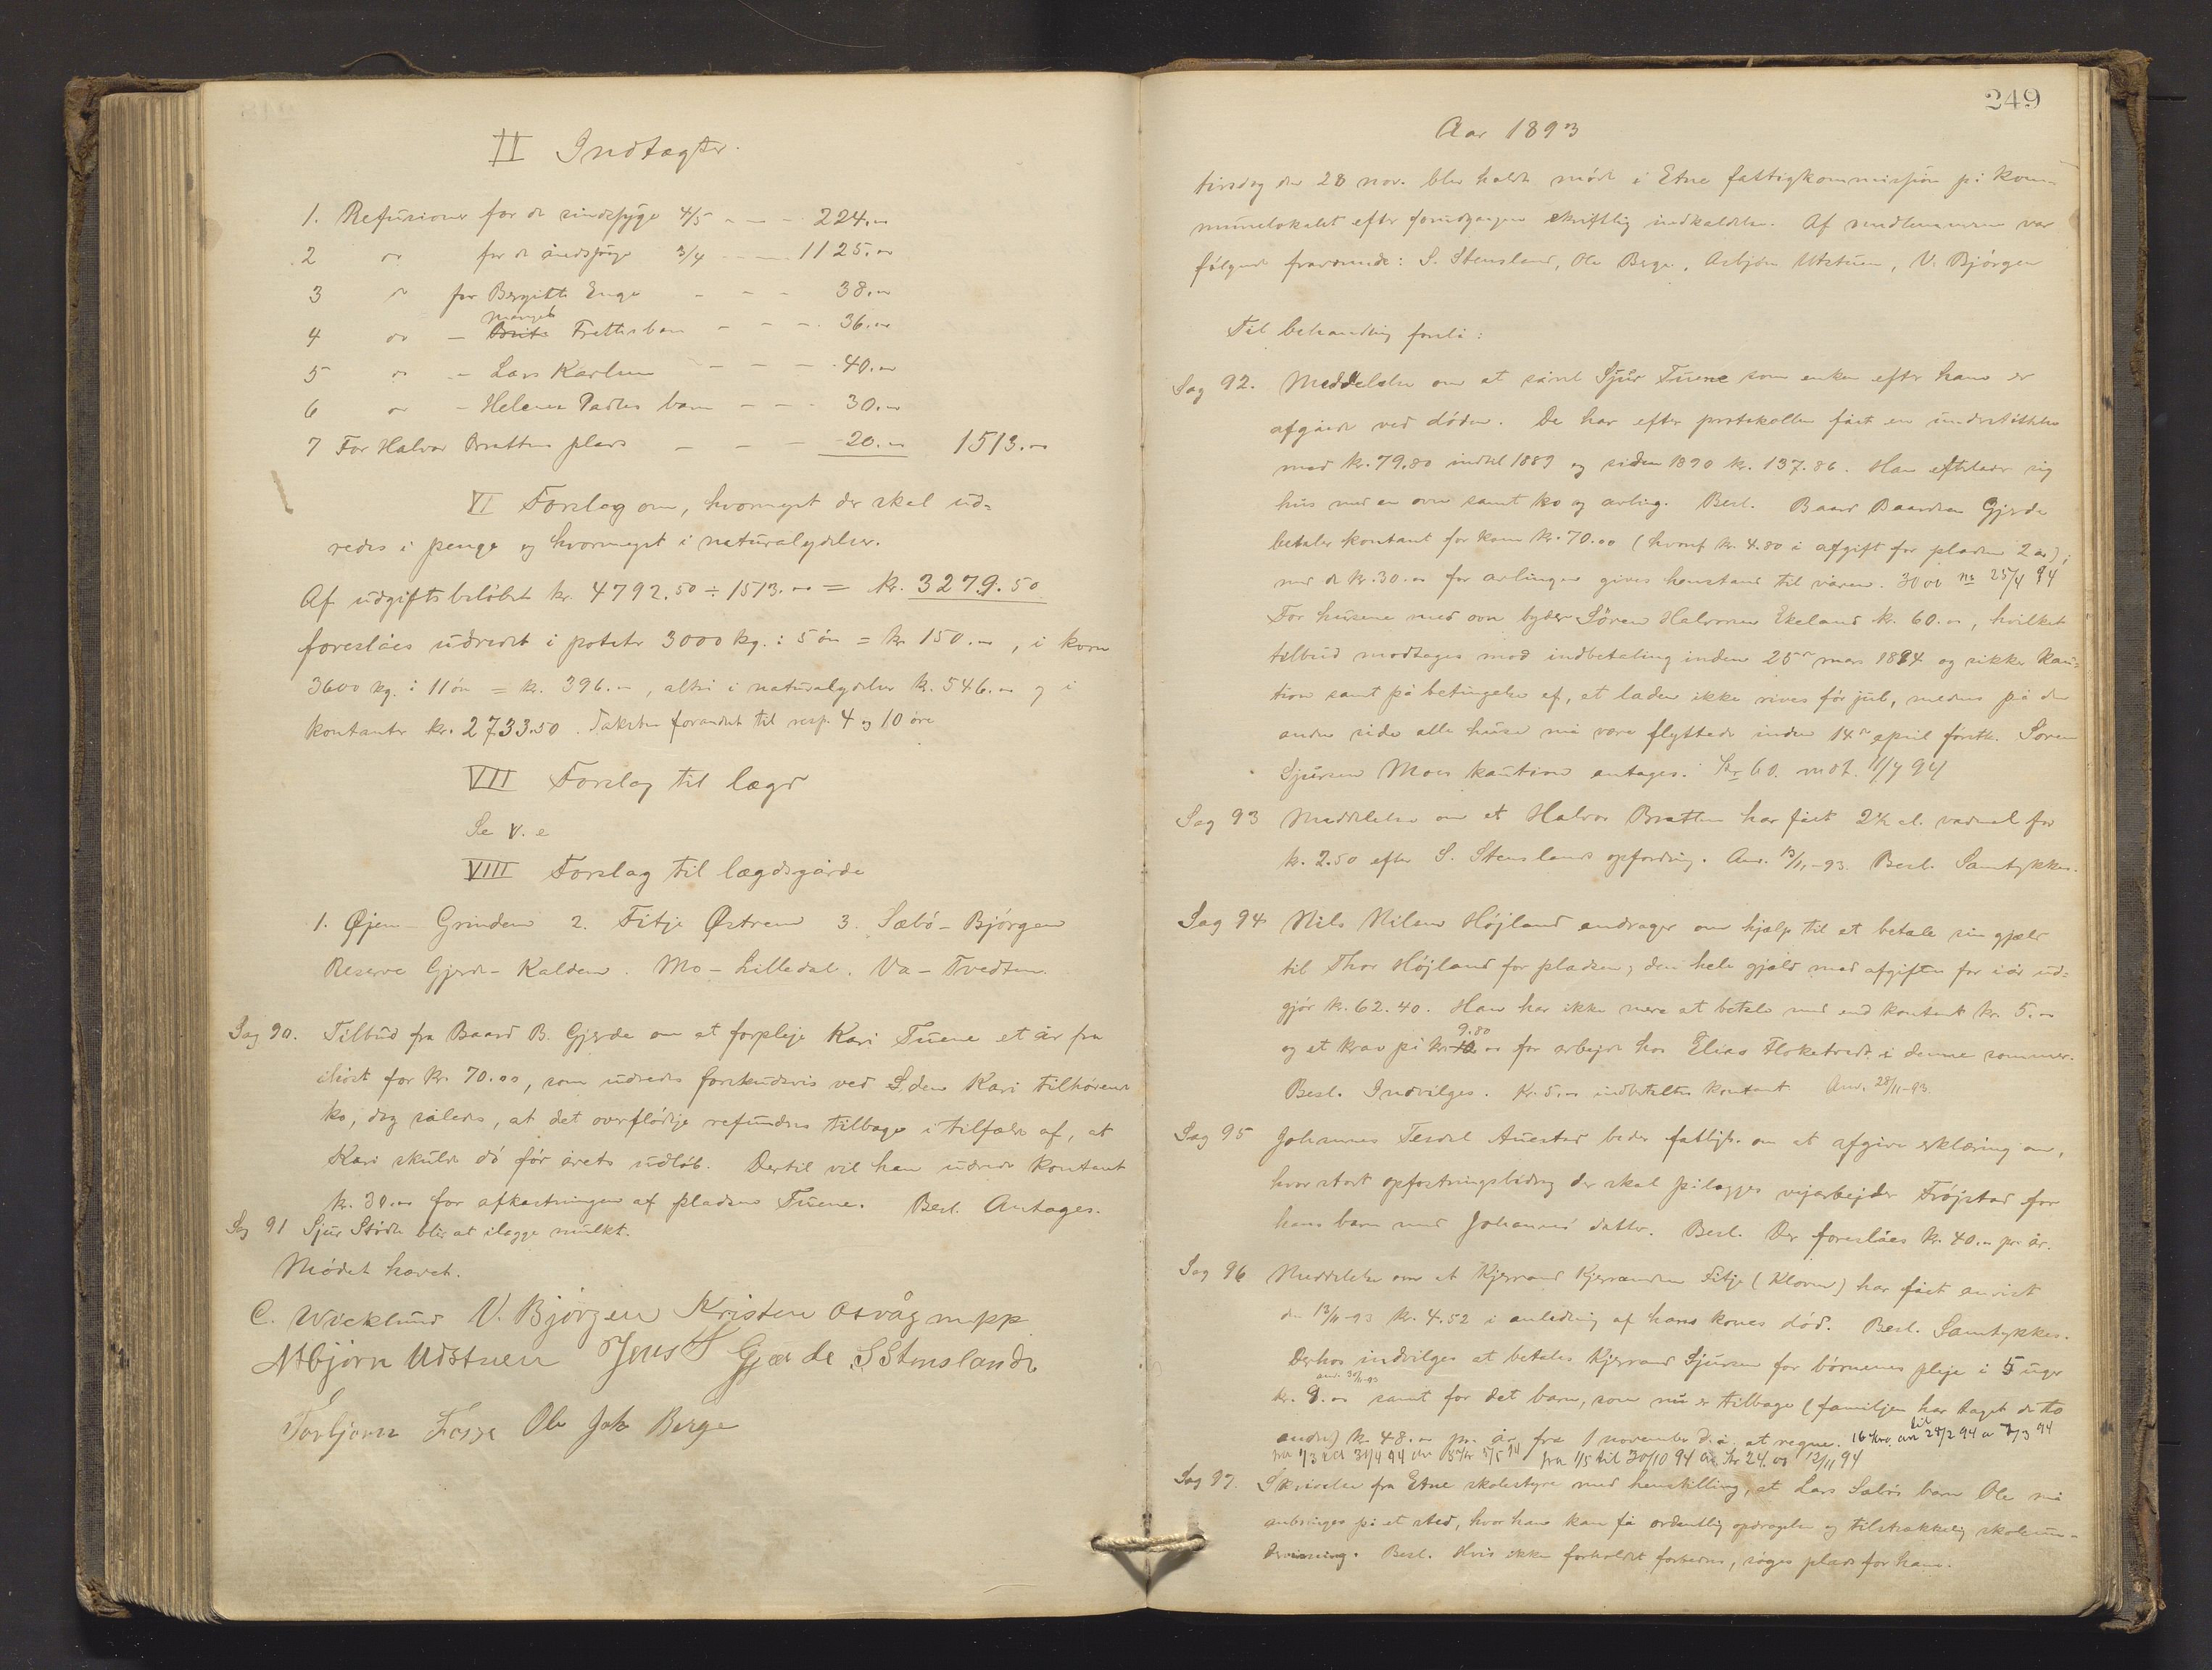 II Indtægter.
1. Refusioner for de sindssyge 4/5 - - - 224.00
2 do for de åndssvage 3/4 - - - 1125.00
3 do for Bergitte Enge - - - 38.00
4 do - Frettes barn - - - 36.00
5 do - Lars Karlsen - - - 40.00
6 do - Helene Padles barn - - - 30.00
7 For Halvor Brattens plads - - - 20.00 1513.00
VI Forslag om, hvormeget der skal ud=
redes i penge og hvormeget i naturalydelser.
Af udgiftsbeløbet kr. 4792.50 ÷ 1513.00 = kr. 3279.50
foreslåes udredet i poteter 3000 kg. à 5 øre = kr. 150.00, i korn
3600 kg. à 11 øre = kr. 396.00, altså i naturalydelser kr. 546.00 og i
kontanter kr. 2733.50. Taksten forandret til resp. 4 og 10 øre
VII Forslag til lægd
Se V. e
VIII Forslag til lægdsgårde
1. Øjen - Grinden 2. Fitje Østrem 3. Sæbø - Bjørgen
Reserve Gjerde - Kalden. Mo - Lilledal. Va - Tvedten.
Sag 90. Tilbud fra Baard B. Gjerde om at forpleje Kari Tuene et år fra
ihøst for kr. 70.00, som udredes forskudsvis ved Sden Kari tilhørende
ko, dog således, at det overflødige refunderes tilbage i tilfælde af, at
Kari skulde dø før årets udløb. Dertil vil han udrede kontant
kr. 30.00 for afkastningen af pladsen Tuene. Besl. Antages.
Sag 91 Sjur Støde blir at ilægge mulkt.
Mødet hævet.
C. Wicklund V. Bjørgen Kristen Osvåg mpp
Asbjørn Udstuen Jens S Gjærde S Stensland
Torbjørn Fosse Ole Joh Berge
249
Aar 1893
tirsdag den 28 nov. blev holdt møde i Etne fattigkommission på kom=
munelokalet efter forudgangen skriftlig indkaldelse. Af medlemmerne var
følgende fremmøde: S. Stensland, Ole Berge, Asbjørn Utstuen, V. Bjørgen
Til behandling forelå:
Sag 92. Meddelelse om at såvel Sjur Tuene som enken efter ham er
afgåede ved døden. De har efter protokollen fået en understøttelse
med kr. 79.80 indtil 1889 og siden 1890 kr. 137.86. Han efterlader sig
hus med en ovn samt ko og avling. Besl. Baard Baardsen Gjerde
betaler kontant for koen kr. 70.00 (hvoraf kr. 4.80 i afgift for pladsen 2 år);
med de kr. 30.00 for avlingen gives henstand til våren. 30 00 25/4 94
For husene med ovn byder Søren Halvorsen Ekeland kr. 60.00, hvilket
tilbud modtages mod indbetaling inden 25de mars 1894 og sikker kau=
tion samt på betingelse af, at laden ikke rives før jul, medens på den
anden side alle huse må være flyttede inden 14de april førstk. Søren
Sjursen Moes kaution antages. Kr 60. mot. 1/4 94
Sag 93 Meddelelse om at Halvor Bratten har fået 2½ al. vadmel for
kr. 2.50 efter S. Stenslands opfordring. Anv. 13/11-93. Besl. Samtykkes.
Sag 94 Nils Nilsen Højland andrager om hjælp til at betale sin gjæld
til Thor Højland for pladsen; den hele gjæld med afgiften for iår ud=
gjør kr. 62.40. Han har ikke mere at betale med end kontant kr. 5.00
og et krav på kr. 9.80 for arbejde hos Elias Floketvedt i denne sommer.
Besl. Indvilges. Kr. 5.00 indbetaltes kontant Anv. 28/11-93.
Sag 95 Johannes Tesdel Auestad beder fattigk. om at afgive erklæring om,
hvor stort opfostringsbidrag der skal pålægges vejarbejder Frøjstad for
hans barn med Johannes' datter. Besl. Der foreslåes kr. 40.00 pr. år.
Sag 96 Meddelelse om at Kjerrand Kjerrandsen Fitje (Kloven) har fået anvist
den 13/11-93 kr. 4.52 i anledning af hans kones død. Besl. Samtykkes.
Derhos indvilges at betales Kjerrand Sjursen for børnenes pleje i 5 uger
anv. 30/11-93
kr. 8.00 samt for det barn, som nu er tilbage (familjen har taget de to
andre) kr. 48.00 pr. år fra 1 november d.å. at regne. 16 kro. anv til 28/2 94 a 7/3 94
fra 1/3 til 31/4 94 anv 8 kr 5/5 94 fra 1/5 til 30/10 94 anv kr 24.00 12/11 94
Sag 97. Skrivelse fra Etne skolestyre med henstilling, at Lars Sæbøs barn Ole må
anbringes på et sted, hvor han kan få ordentlig opdragelse og tilstrækkelig skoleun=
dervisning. Besl. Hvis ikke forholdet forbedres, søges plads for ham.